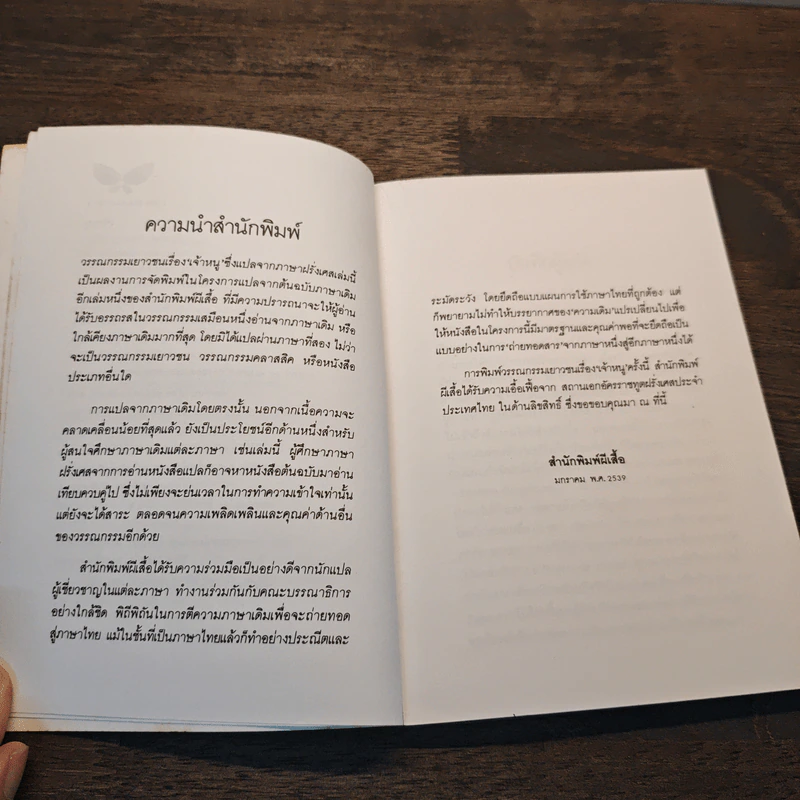 ความนำสำนักพิมพ์
วรรณกรรมเยาวชนเรื่อง‘เจ้าหนู’ซึ่งแปลจากภาษาฝรั่งเศสเล่มนี้
เป็นผลงานการจัดพิมพ์ในโครงการแปลจากต้นฉบับภาษาเดิม
อีกเล่มหนึ่งของสำนักพิมพ์ผีเสื้อ ที่มีความปรารถนาจะให้ผู้อ่าน
ได้รับอรรถรสในวรรณกรรมเสมือนหนึ่งอ่านจากภาษาเดิม หรือ
ใกล้เคียงภาษาเดิมมากที่สุด โดยมิได้แปลผ่านภาษาที่สอง ไม่ว่า
จะเป็นวรรณกรรมเยาวชน วรรณกรรมคลาสสิค หรือหนังสือ
ประเภทอื่นใด
การแปลจากภาษาเดิมโดยตรงนั้น นอกจากเนื้อความจะ
คลาดเคลื่อนน้อยที่สุดแล้ว ยังเป็นประโยชน์อีกด้านหนึ่งสำหรับ
ผู้สนใจศึกษาภาษาเดิมแต่ละภาษา เช่นเล่มนี้ ผู้ศึกษาภาษา
ฝรั่งเศสจากการอ่านหนังสือแปลก็อาจหาหนังสือต้นฉบับมาอ่าน
เทียบควบคู่ไป ซึ่งไม่เพียงจะย่นเวลาในการทำความเข้าใจเท่านั้น
แต่ยังจะได้สาระ ตลอดจนความเพลิดเพลินและคุณค่าด้านอื่น
ของวรรณกรรมอีกด้วย
สำนักพิมพ์ผีเสื้อได้รับความร่วมมือเป็นอย่างดีจากนักแปล
ผู้เชี่ยวชาญในแต่ละภาษา ทำงานร่วมกันกับคณะบรรณาธิการ
อย่างใกล้ชิด พิถีพิถันในการตีความภาษาเดิมเพื่อจะถ่ายทอด
สู่ภาษาไทย แม้ในชั้นที่เป็นภาษาไทยแล้วก็ทำอย่างประณีตและ
ระมัดระวัง โดยยึดถือแบบแผนการใช้ภาษาไทยที่ถูกต้อง แต่
ก็พยายามไม่ทำให้บรรยากาศของ‘ความเดิม’แปรเปลี่ยนไปเพื่อ
ให้หนังสือในโครงการนี้มีมาตรฐานและคุณค่าพอที่จะยึดถือเป็น
แบบอย่างในการ‘ถ่ายทอดสาร’จากภาษาหนึ่งสู่อีกภาษาหนึ่งได้
การพิมพ์วรรณกรรมเยาวชนเรื่อง‘เจ้าหนู’ครั้งนี้ สำนักพิมพ์
ผีเสื้อได้รับความเอื้อเฟื้อจาก สถานเอกอัครราชทูตฝรั่งเศสประจำ
ประเทศไทย ในด้านลิขสิทธิ์ ซึ่งขอขอบคุณมา ณ ที่นี้
สำนักพิมพ์ผีเสื้อ
มกราคม พ.ศ. 2539